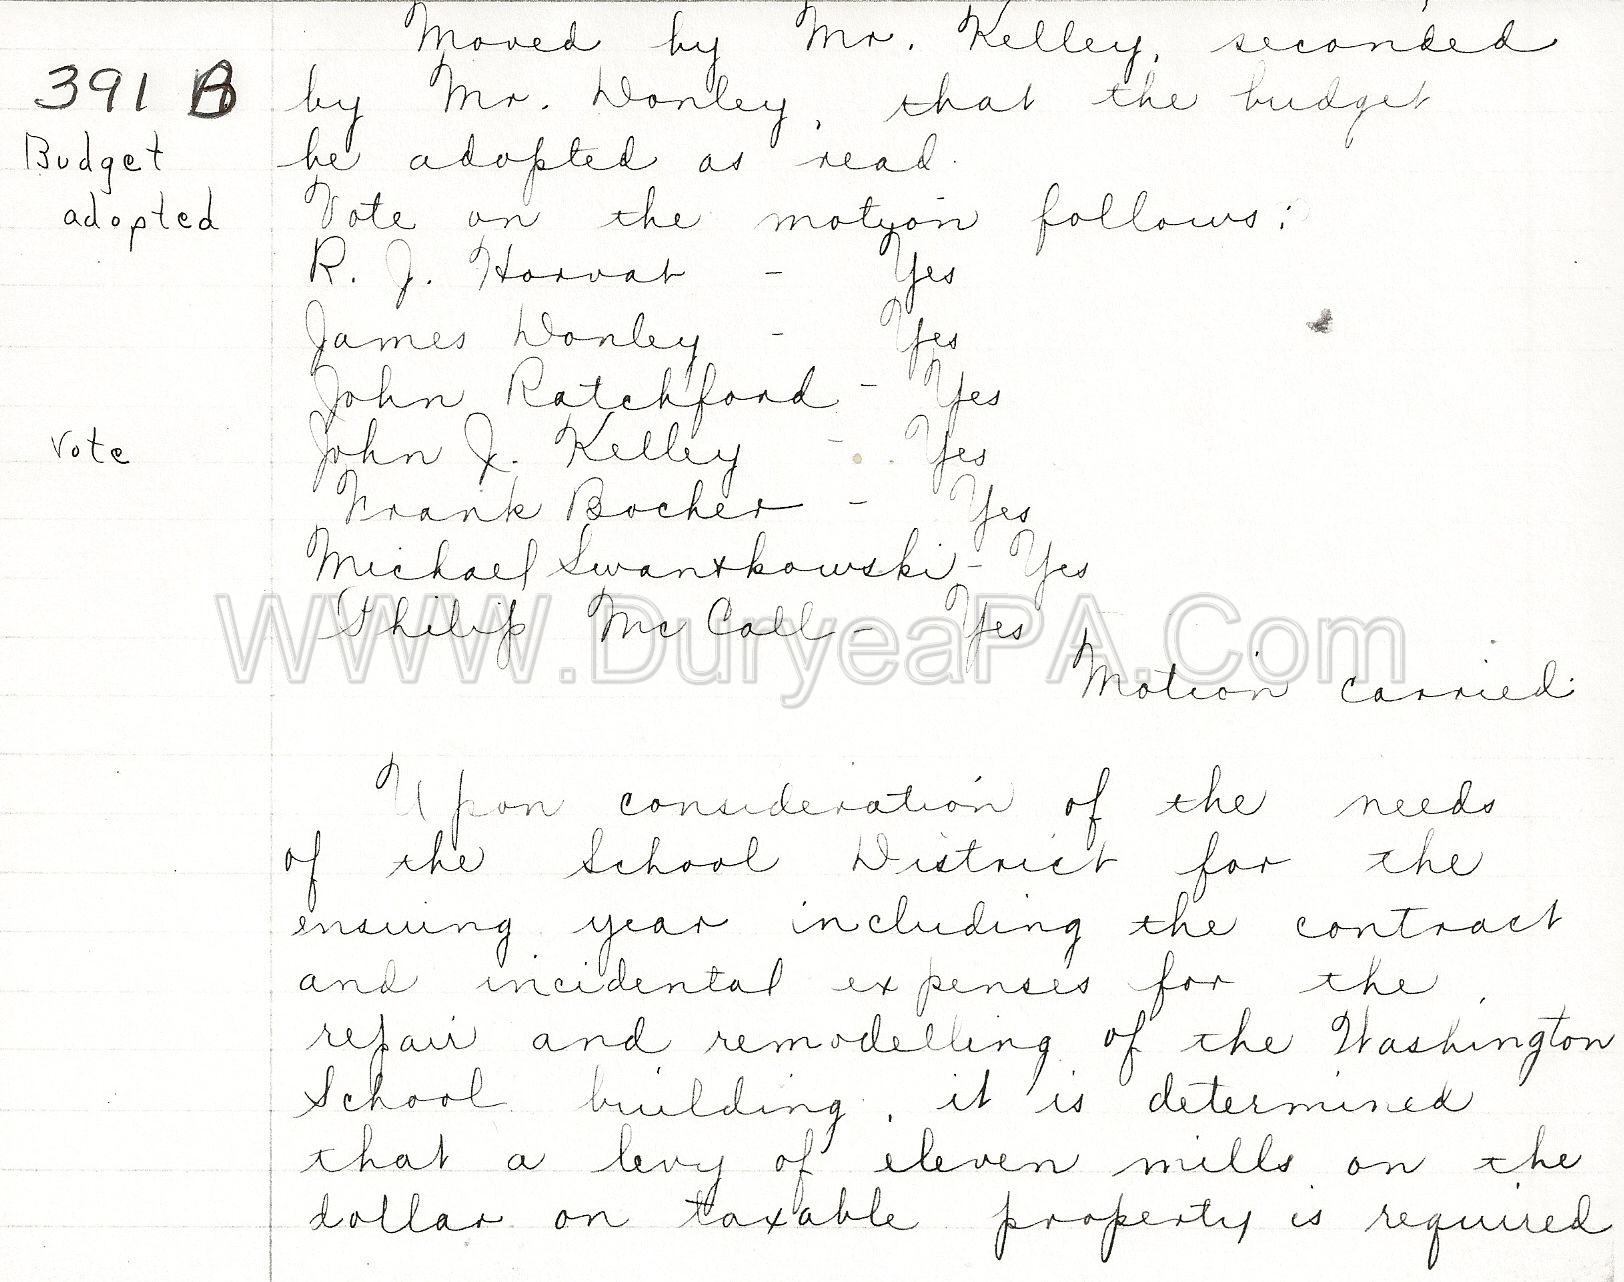 Moved by Mr. Kelley, seconded
391 B by Mr. Donley, that the budget
Budget be adopted as read.
adopted Vote on the motion follows:
R. J. Horvat - Yes
James Donley - Yes
John Ratchford - Yes
Vote John J. Kelley - Yes
Frank Bocher - Yes
Michael Swantkowski - Yes
Philip McCall - Yes
WWW.DuryeaPA.Com
Motion carried.
Upon consideration of the needs
of the School District for the
ensuing year including the contract
and incidental expenses for the
repair and remodelling of the Washington
School building, it is determined
that a levy of eleven mills on the
dollar on taxable property is required